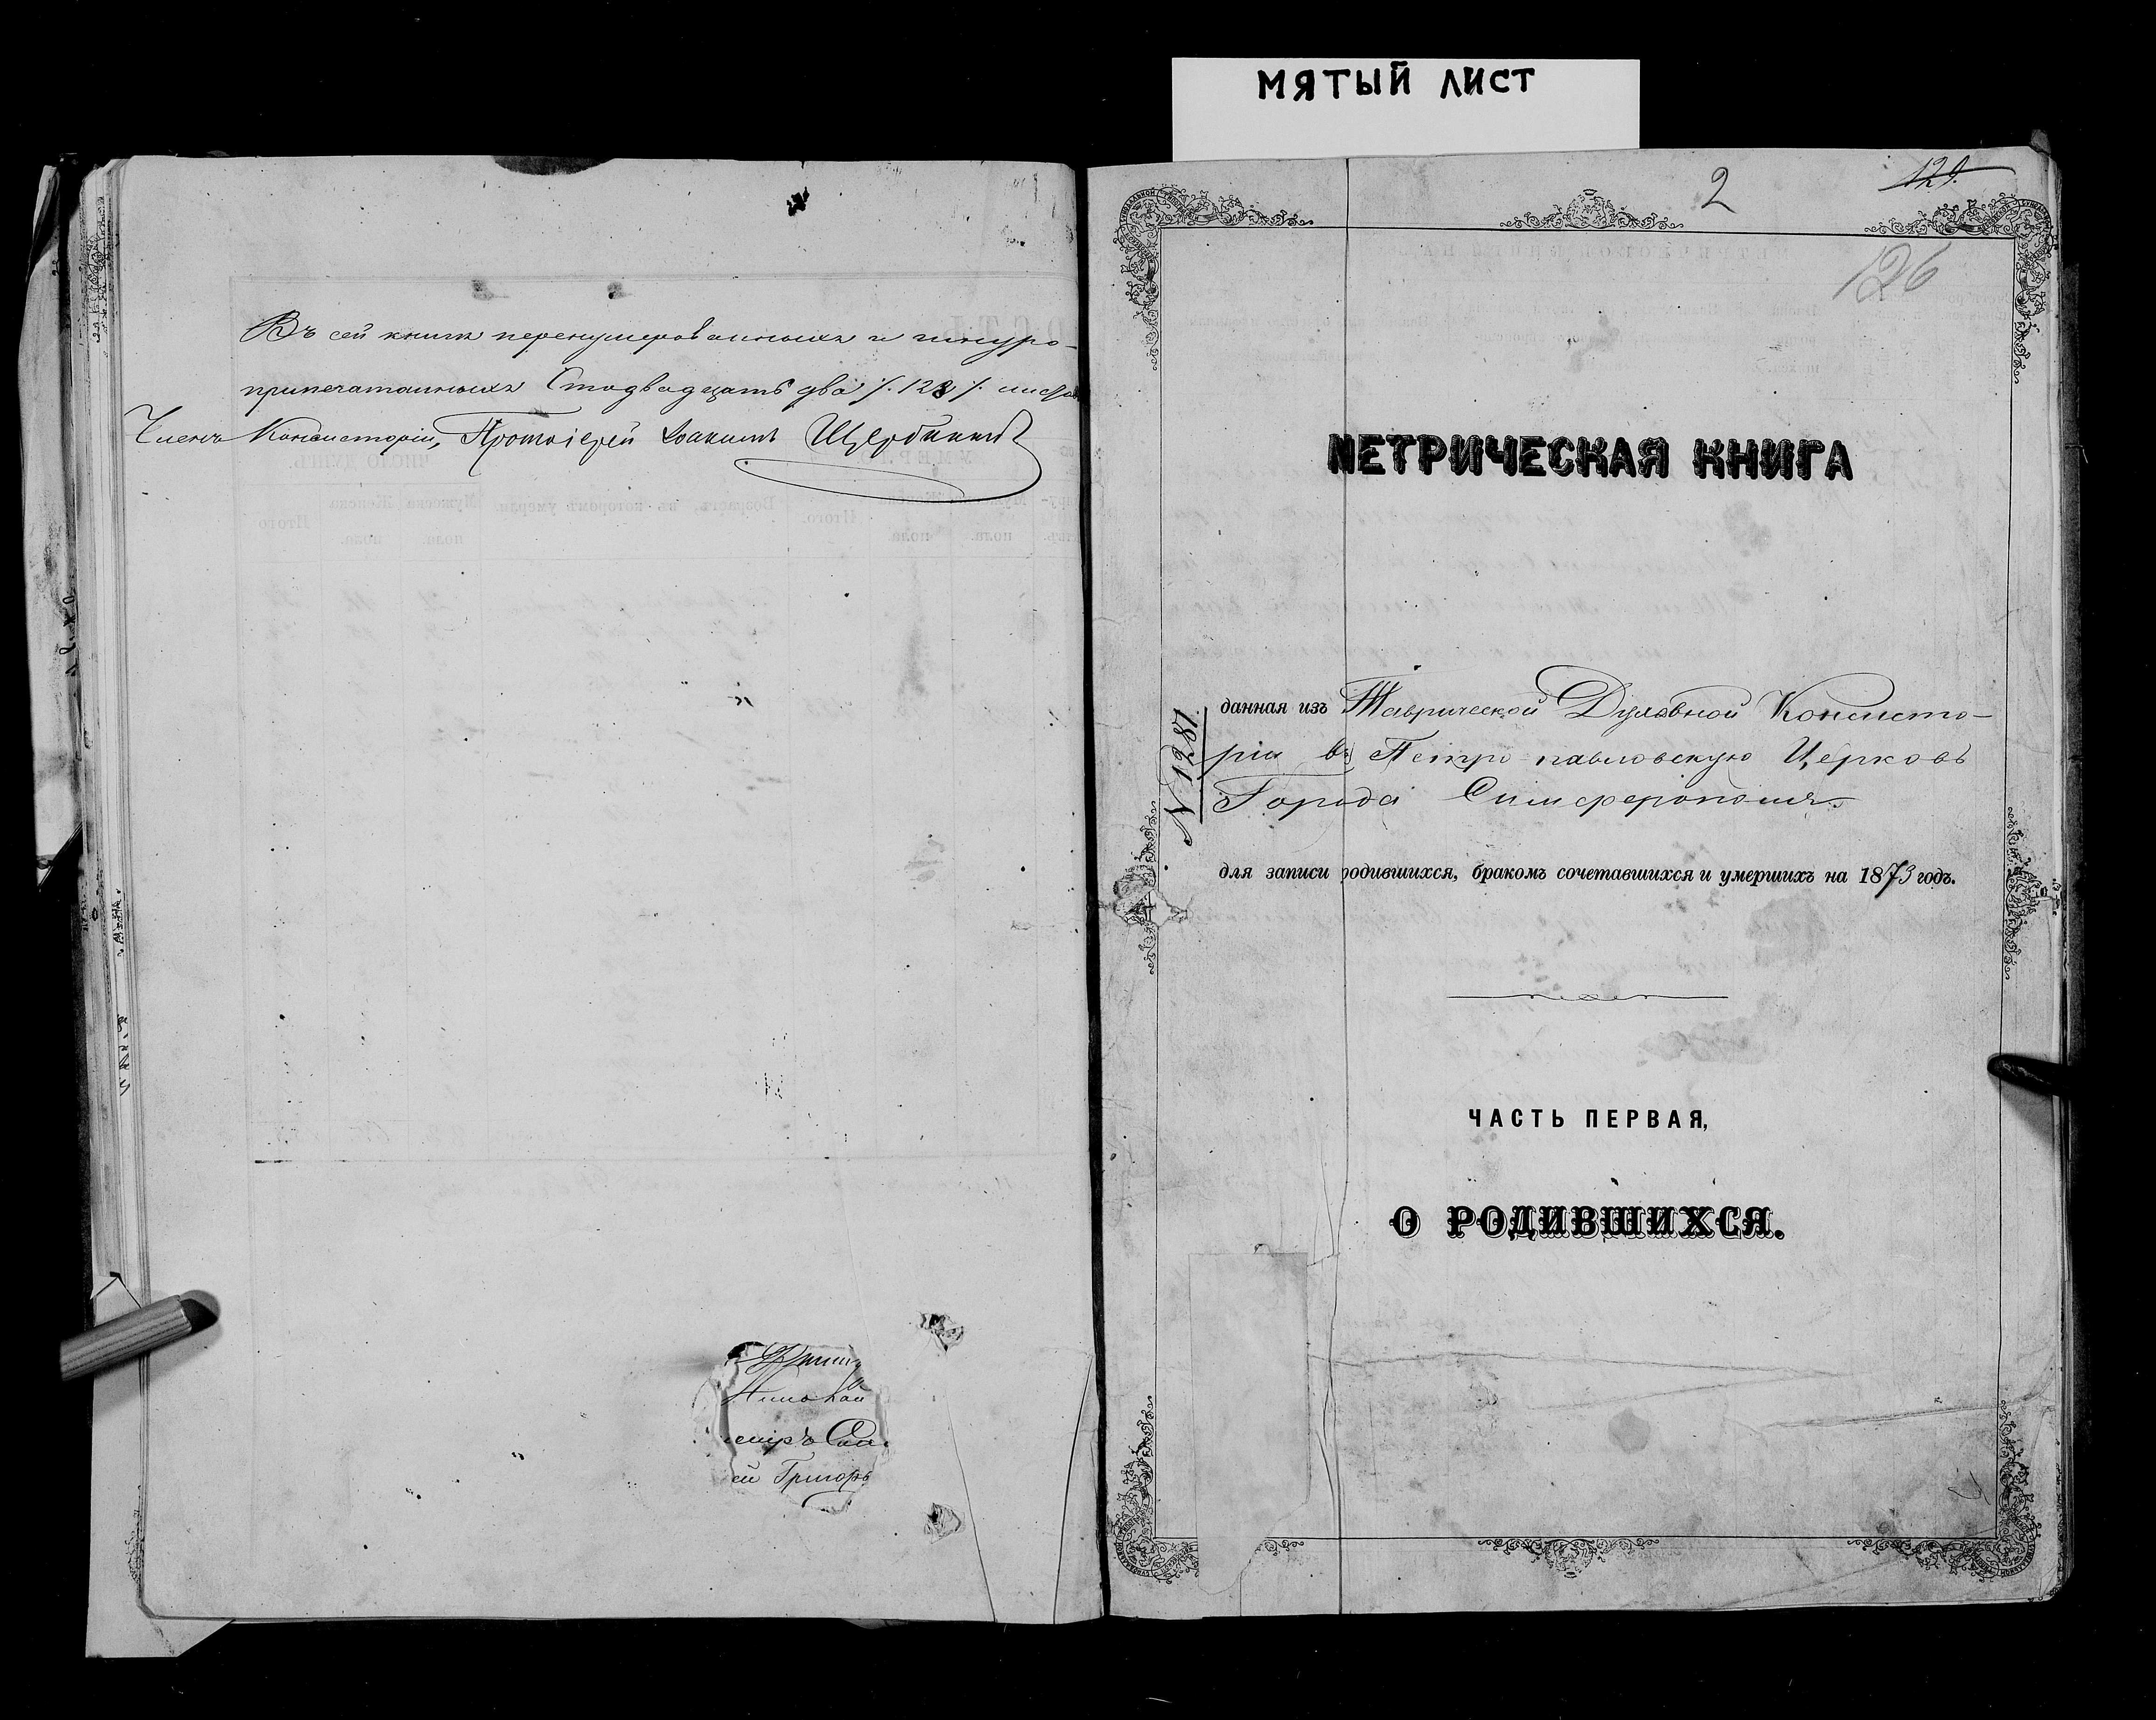 МЯТЫЙ ЛИСТ
Въ сей книге перенумерованныхъ и шнуро-
припечатанныхъ Стодвадцать два /. 122 /. листа
Членъ Консисторіи, Протоіерей Іоакимъ Щербининъ
Николай
Григорь
2
129.
126
МЕТРИЧЕСКАЯ КНИГА
N 1281.
данная изъ Таврической Духовной Консисто-
ріи въ Петро-павловскую Церковь
Города Симферополя.
для записи родившихся, бракомъ сочетавшихся и умершихъ на 1873 годъ.
ЧАСТЬ ПЕРВАЯ,
О РОДИВШИХСЯ.